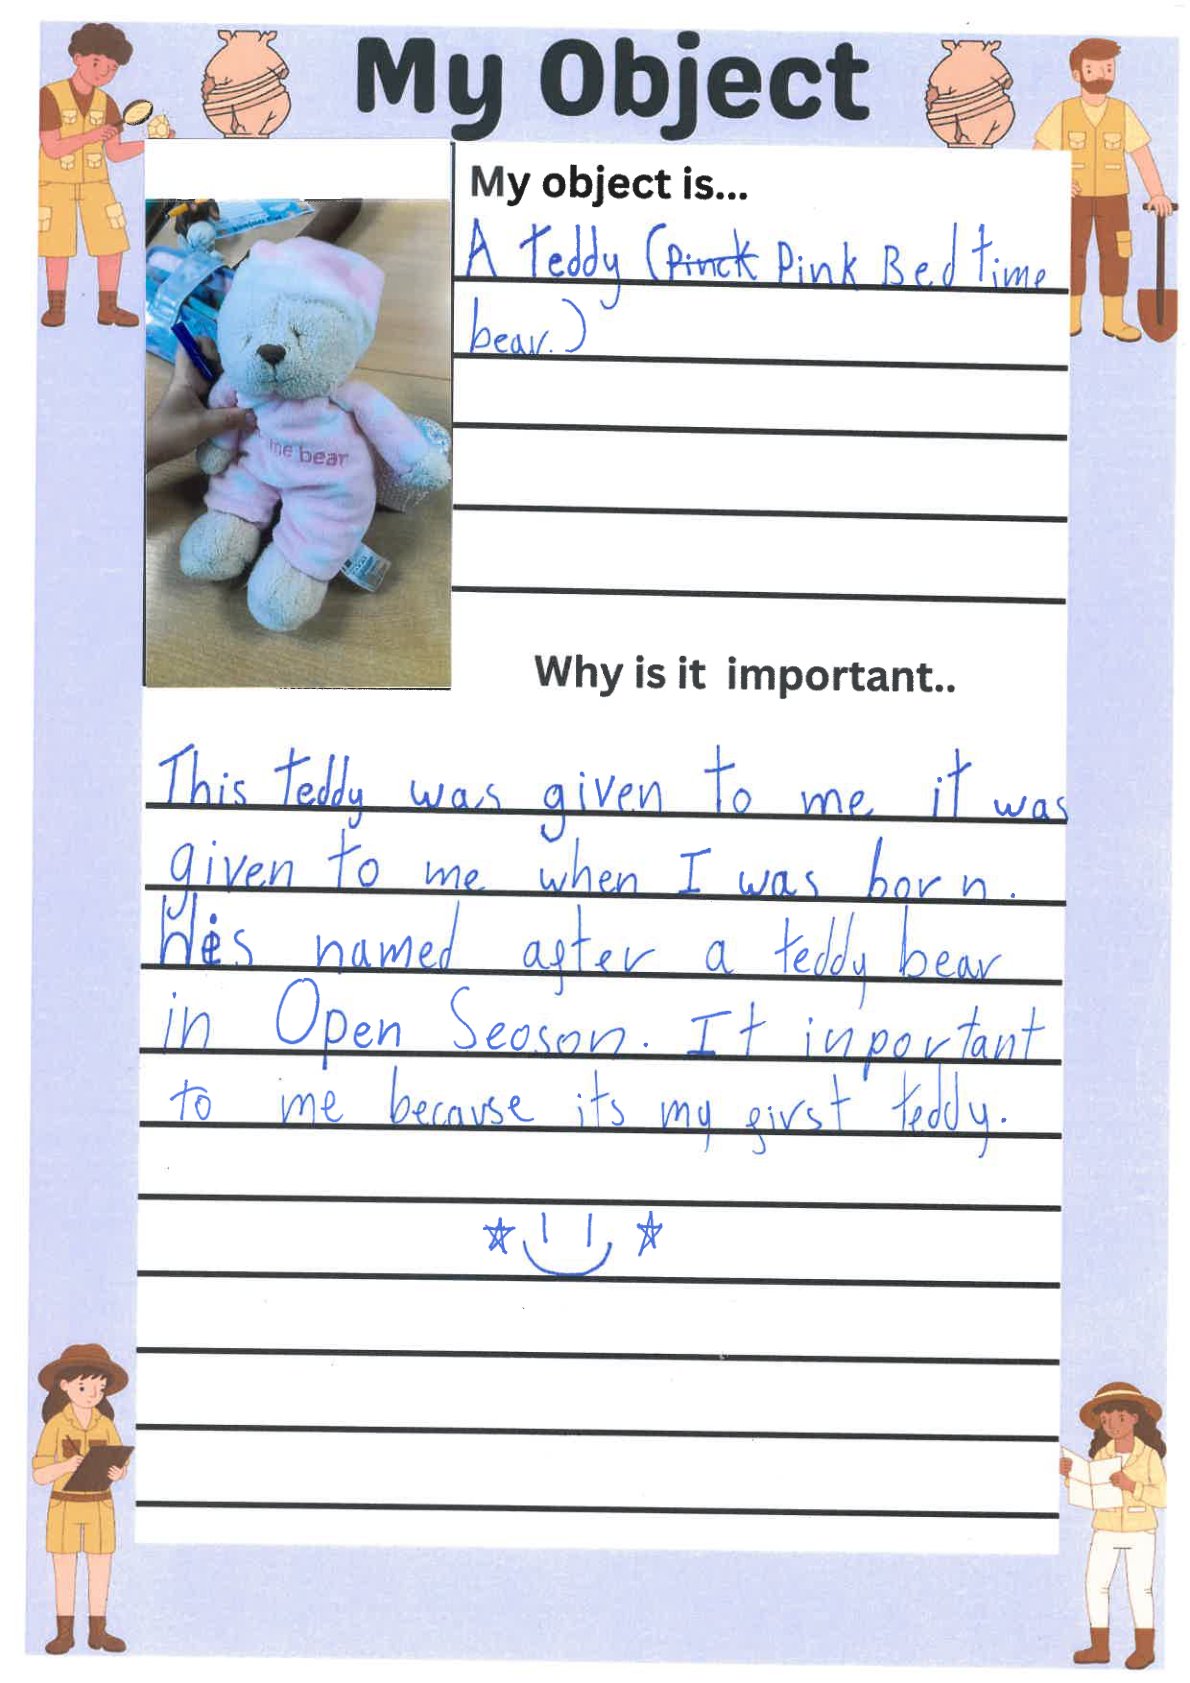 My Object
My object is...
A teddy (Pinck Pink Bedtime
bear.)
me bear
Why is it important..
This teddy was given to me it was
given to me when I was born.
His named after a teddy bear
in Open Seoson. It inportant
to me because its my first teddy.